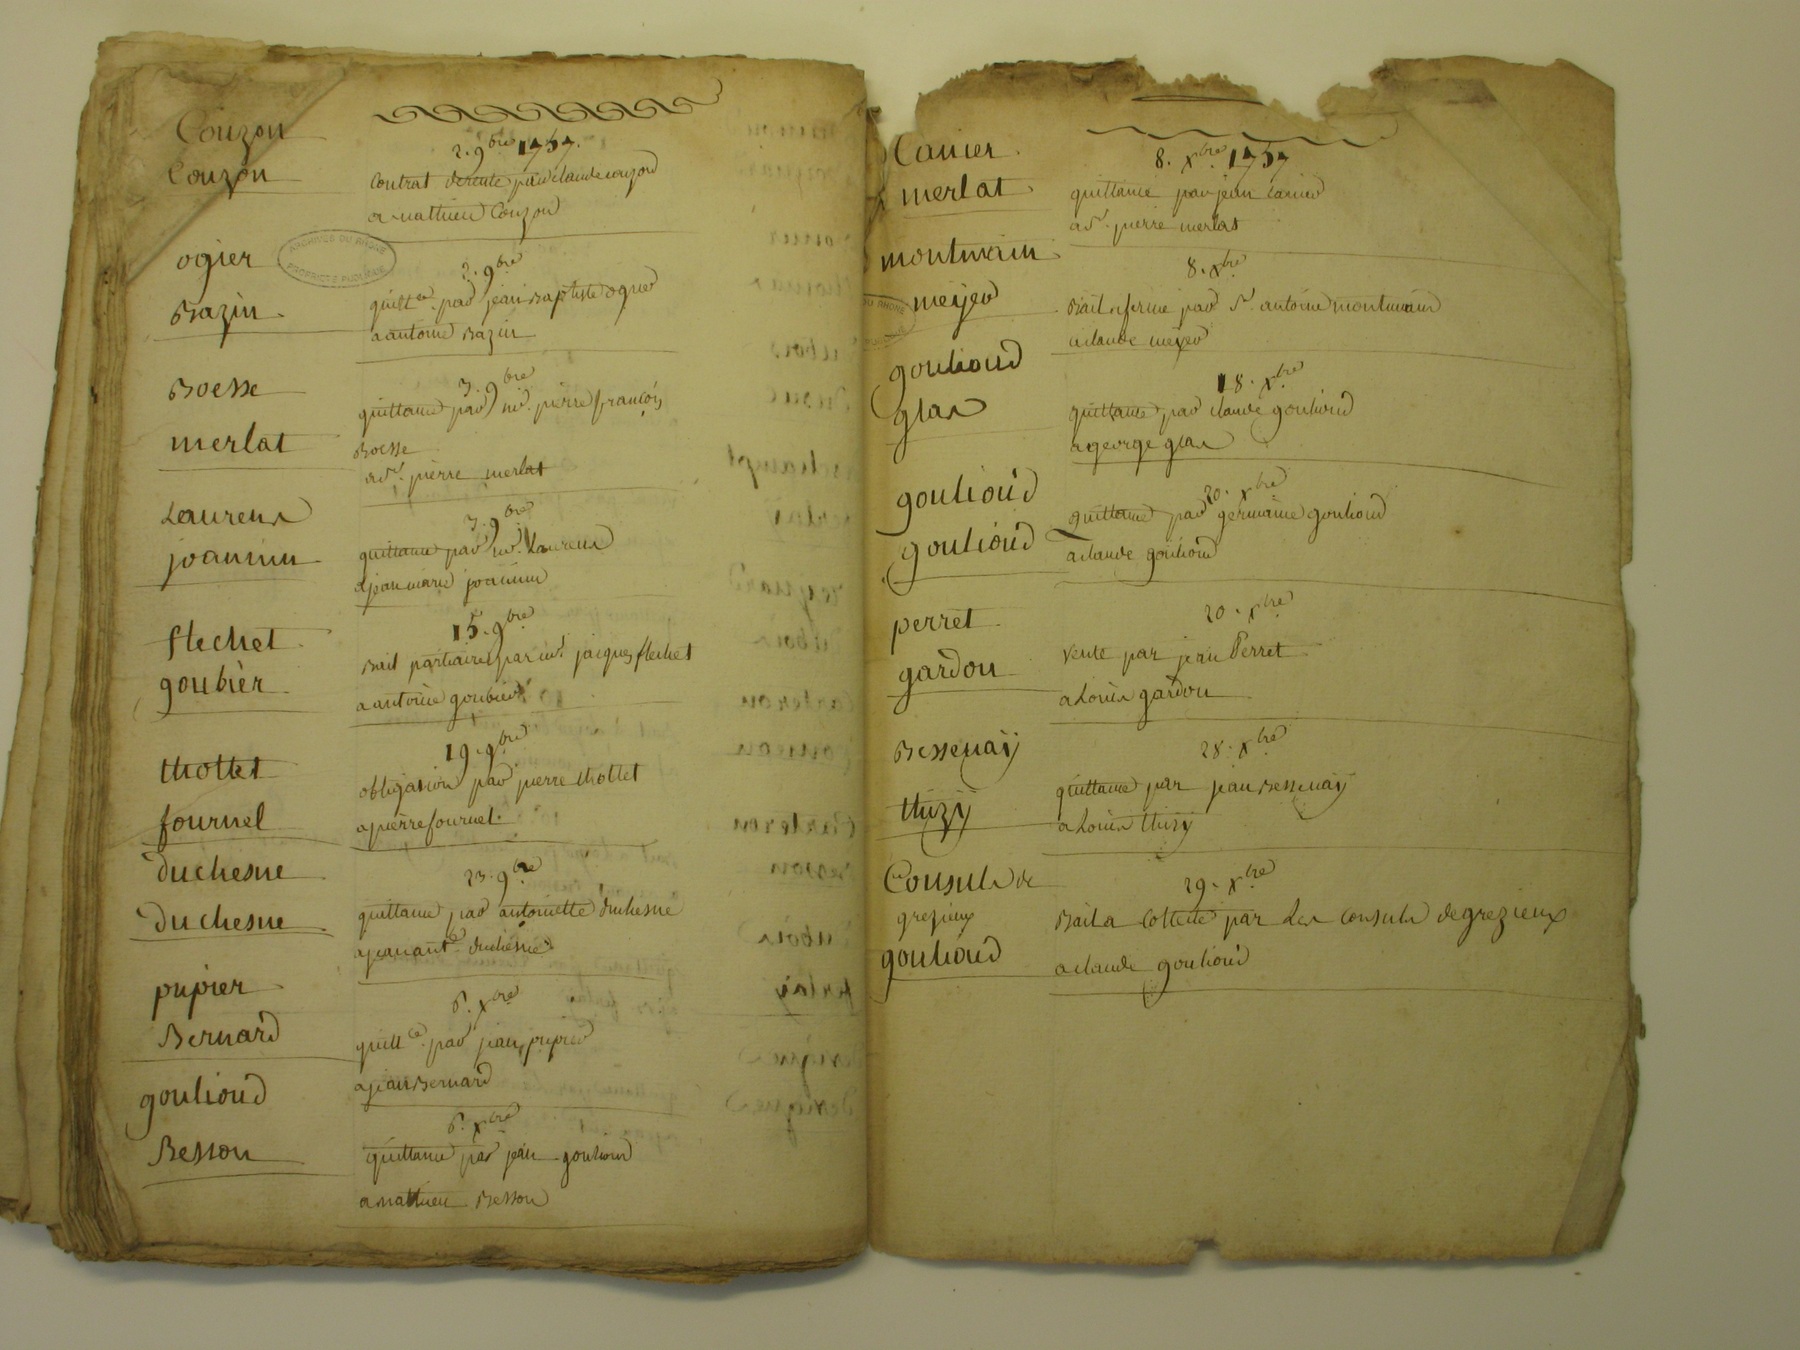 Couzon
Couzon
2. 9bre 1757.
Contrat de vente par claude couzon
a mathieu Couzon
ogier
Bazin
ARCHIVES DU RHONE
PROPRIETE PUBLIQUE
2. 9bre
quittce. par jean Baptiste ogier
a antoine Bazin
Boesse
merlat
3. 9bre
quittance par me. pierre françois
Boesse
a Sr. pierre merlat
Laurens
joannin
3. 9bre
quittance par me. Laurens
a jean marie joannin
flechet
goubier
15. 9bre
Bail partiaire par me. jacques flechet
a antoine goubier
thollet
fournel
19. 9bre
obligation par pierre thollet
a pierre fournel.
duchesne
duchesne
23. 9bre
quittance par antoinette duchesne
a jean ante. duchesne
pupier
Bernard
6. xbre
quittce. par jean pupier
a jean Bernard
goulioud
Besson
6. xbre
quittance par jean goulioud
a mathieu Besson
Canier
merlat
8. xbre 1757
quittance par jean Canier
a Sr. pierre merlat
montmain
meyer
8. xbre
Bail a ferme par Sr. antoine montmain
a claude meyer
goulioud
glas
18. xbre
quittance par claude goulioud
a george glas
goulioud
goulioud
20. xbre
quittance par germaine goulioud
a claude goulioud
perret
gardon
20. xbre
vente par jean Perret
a Louis gardon
Bessenaÿ
thizÿ
28. xbre
quittance par jean Bessenaÿ
a Louis thizÿ
Consuls de
grezieux
goulioud
29. xbre
Bail a Collecte par Les Consuls de grezieux
a claude goulioud